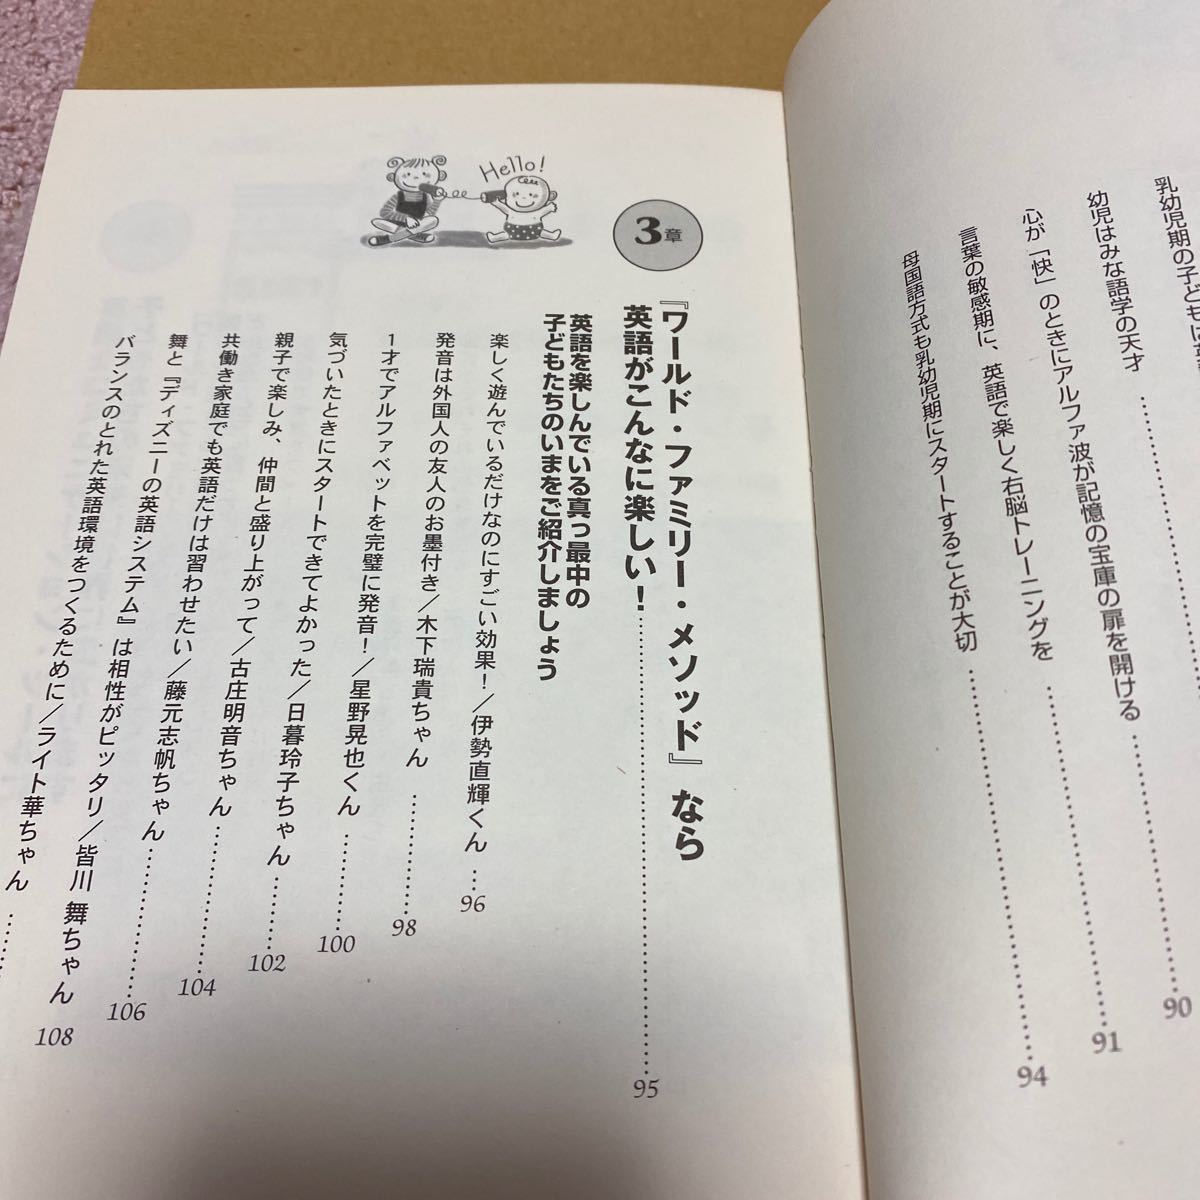 乳幼児期の子どもは
90
幼児はみな語学の天才
91
心が「快」のときにアルファ波が記憶の宝庫の扉を開ける
言葉の敏感期に、英語で楽しく右脳トレーニングを
94
母国語方式も乳幼児期にスタートすることが大切
Hello!
3章
『ワールド・ファミリー・メソッド』なら
英語がこんなに楽しい!……95
英語を楽しんでいる真っ最中の
子どもたちのいまをご紹介しましょう
楽しく遊んでいるだけなのにすごい効果!/伊勢直輝くん…96
発音は外国人の友人のお墨付き/木下瑞貴ちゃん……98
1才でアルファベットを完璧に発音!/星野晃也くん……100
気づいたときにスタートできてよかった/日暮玲子ちゃん……102
親子で楽しみ、仲間と盛り上がって/古庄明音ちゃん……104
共働き家庭でも英語だけは習わせたい/藤元志帆ちゃん……106
舞と『ディズニーの英語システム』は相性がピッタリ/皆川 舞ちゃん 108
バランスのとれた英語環境をつくるために/ライト華ちゃん……